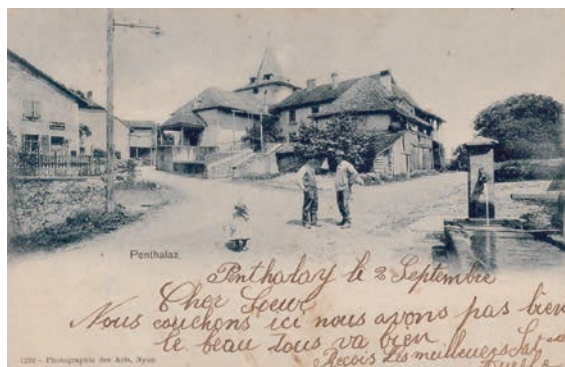 Penthalaz
Penthalaz le 2 Septembre
Cher Soeur
Nous couchons ici nous avons pas bien
le beau tous va bien
Reçois Les meilleuers
1228 - Photographie des Arts, Nyon